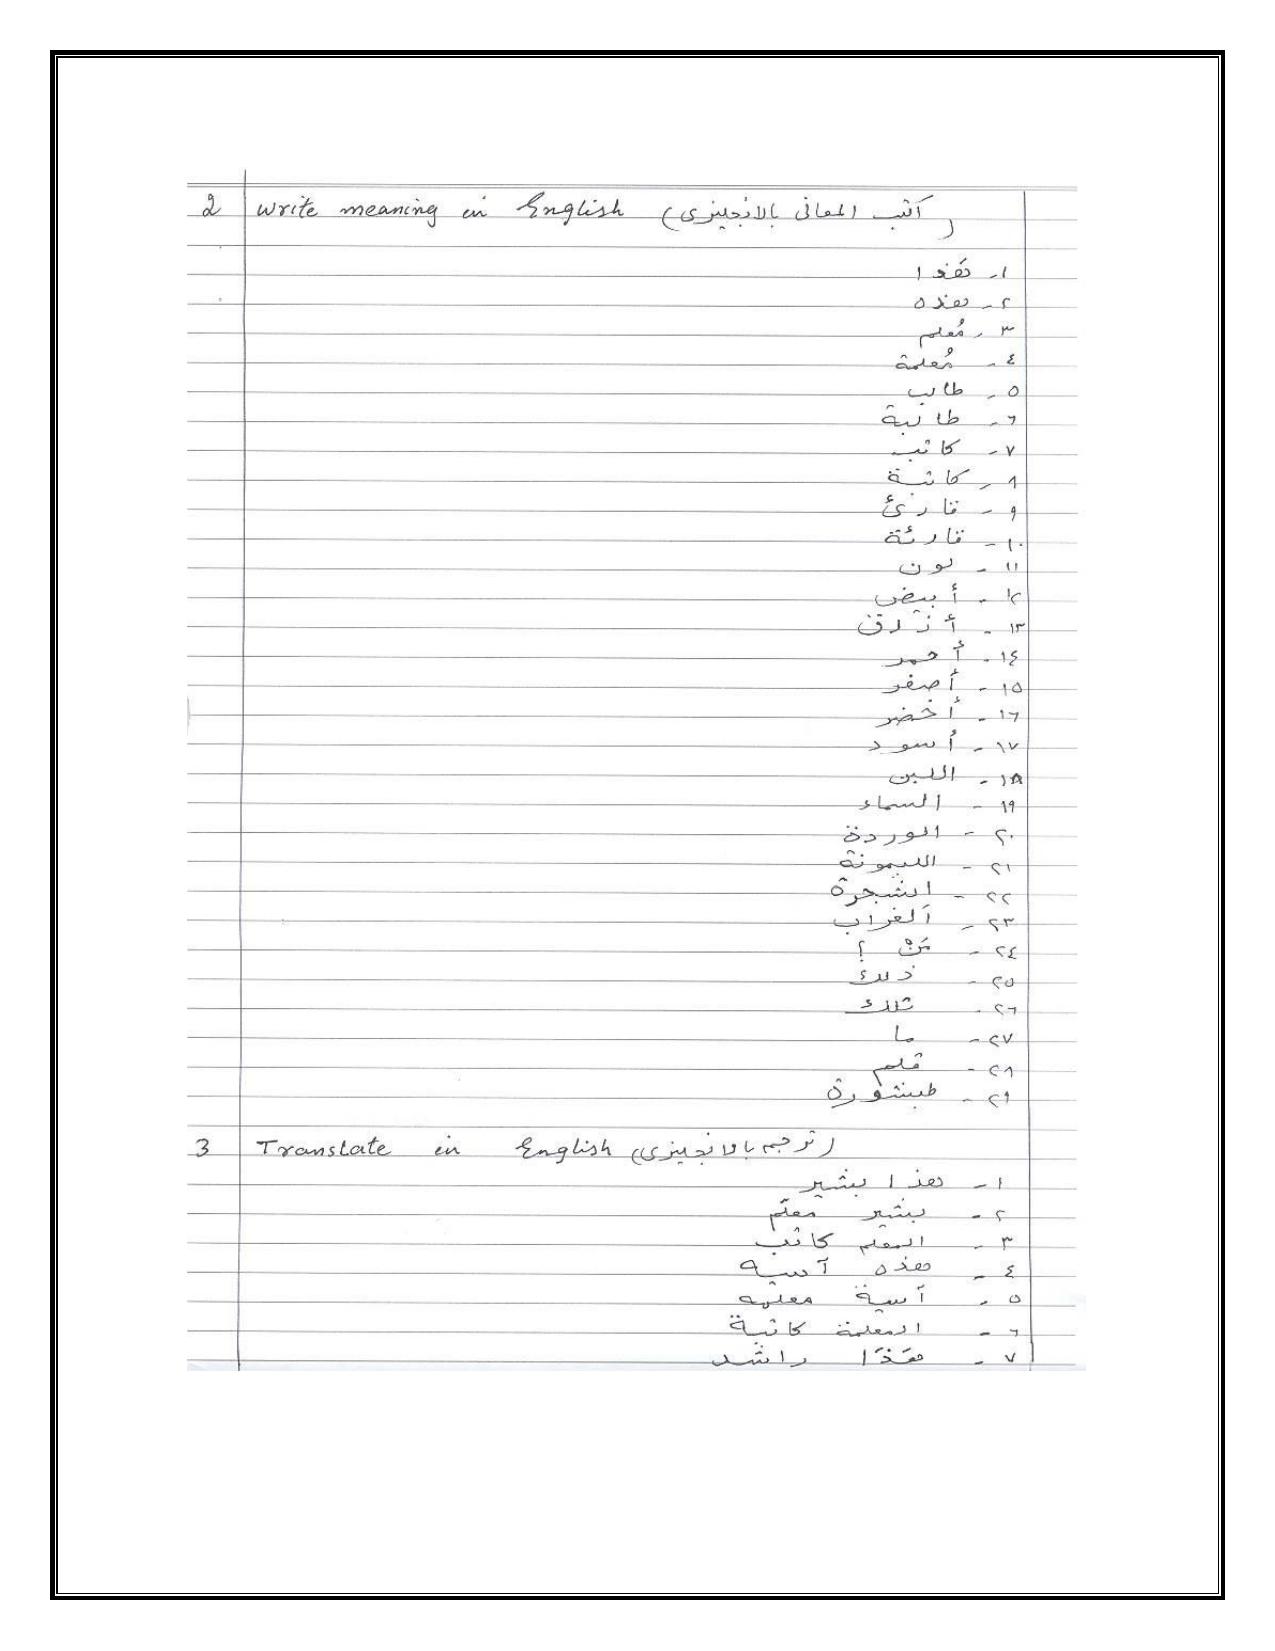 2 Write meaning in English (اكتب المعانى بالانجليزى)
١- هَذا
٢- هذه
٣- مُعلم
٤- مُعلمة
٥- طالب
٦- طالبة
٧- كاتب
٨- كاتبة
٩- قارئ
١٠- قارئة
١١- لون
١٢- أبيض
١٣- أزرق
١٤- أحمر
١٥- أصفر
١٦- أخضر
١٧- أسود
١٨- اللبن
١٩- السماء
٢٠- الوردة
٢١- الليمونة
٢٢- الشجرة
٢٣- الغراب
٢٤- مَنْ ؟
٢٥- ذلك
٢٦- تلك
٢٧- ما
٢٨- قلم
٢٩- طبشورة
3 Translate in English (ترجم بالانجليزى)
١- هذا بشير
٢- بشير معلم
٣- المعلم كاتب
٤- هذه آسيه
٥- آسية معلمه
٦- المعلمة كاتبة
٧- هَذَا راشد